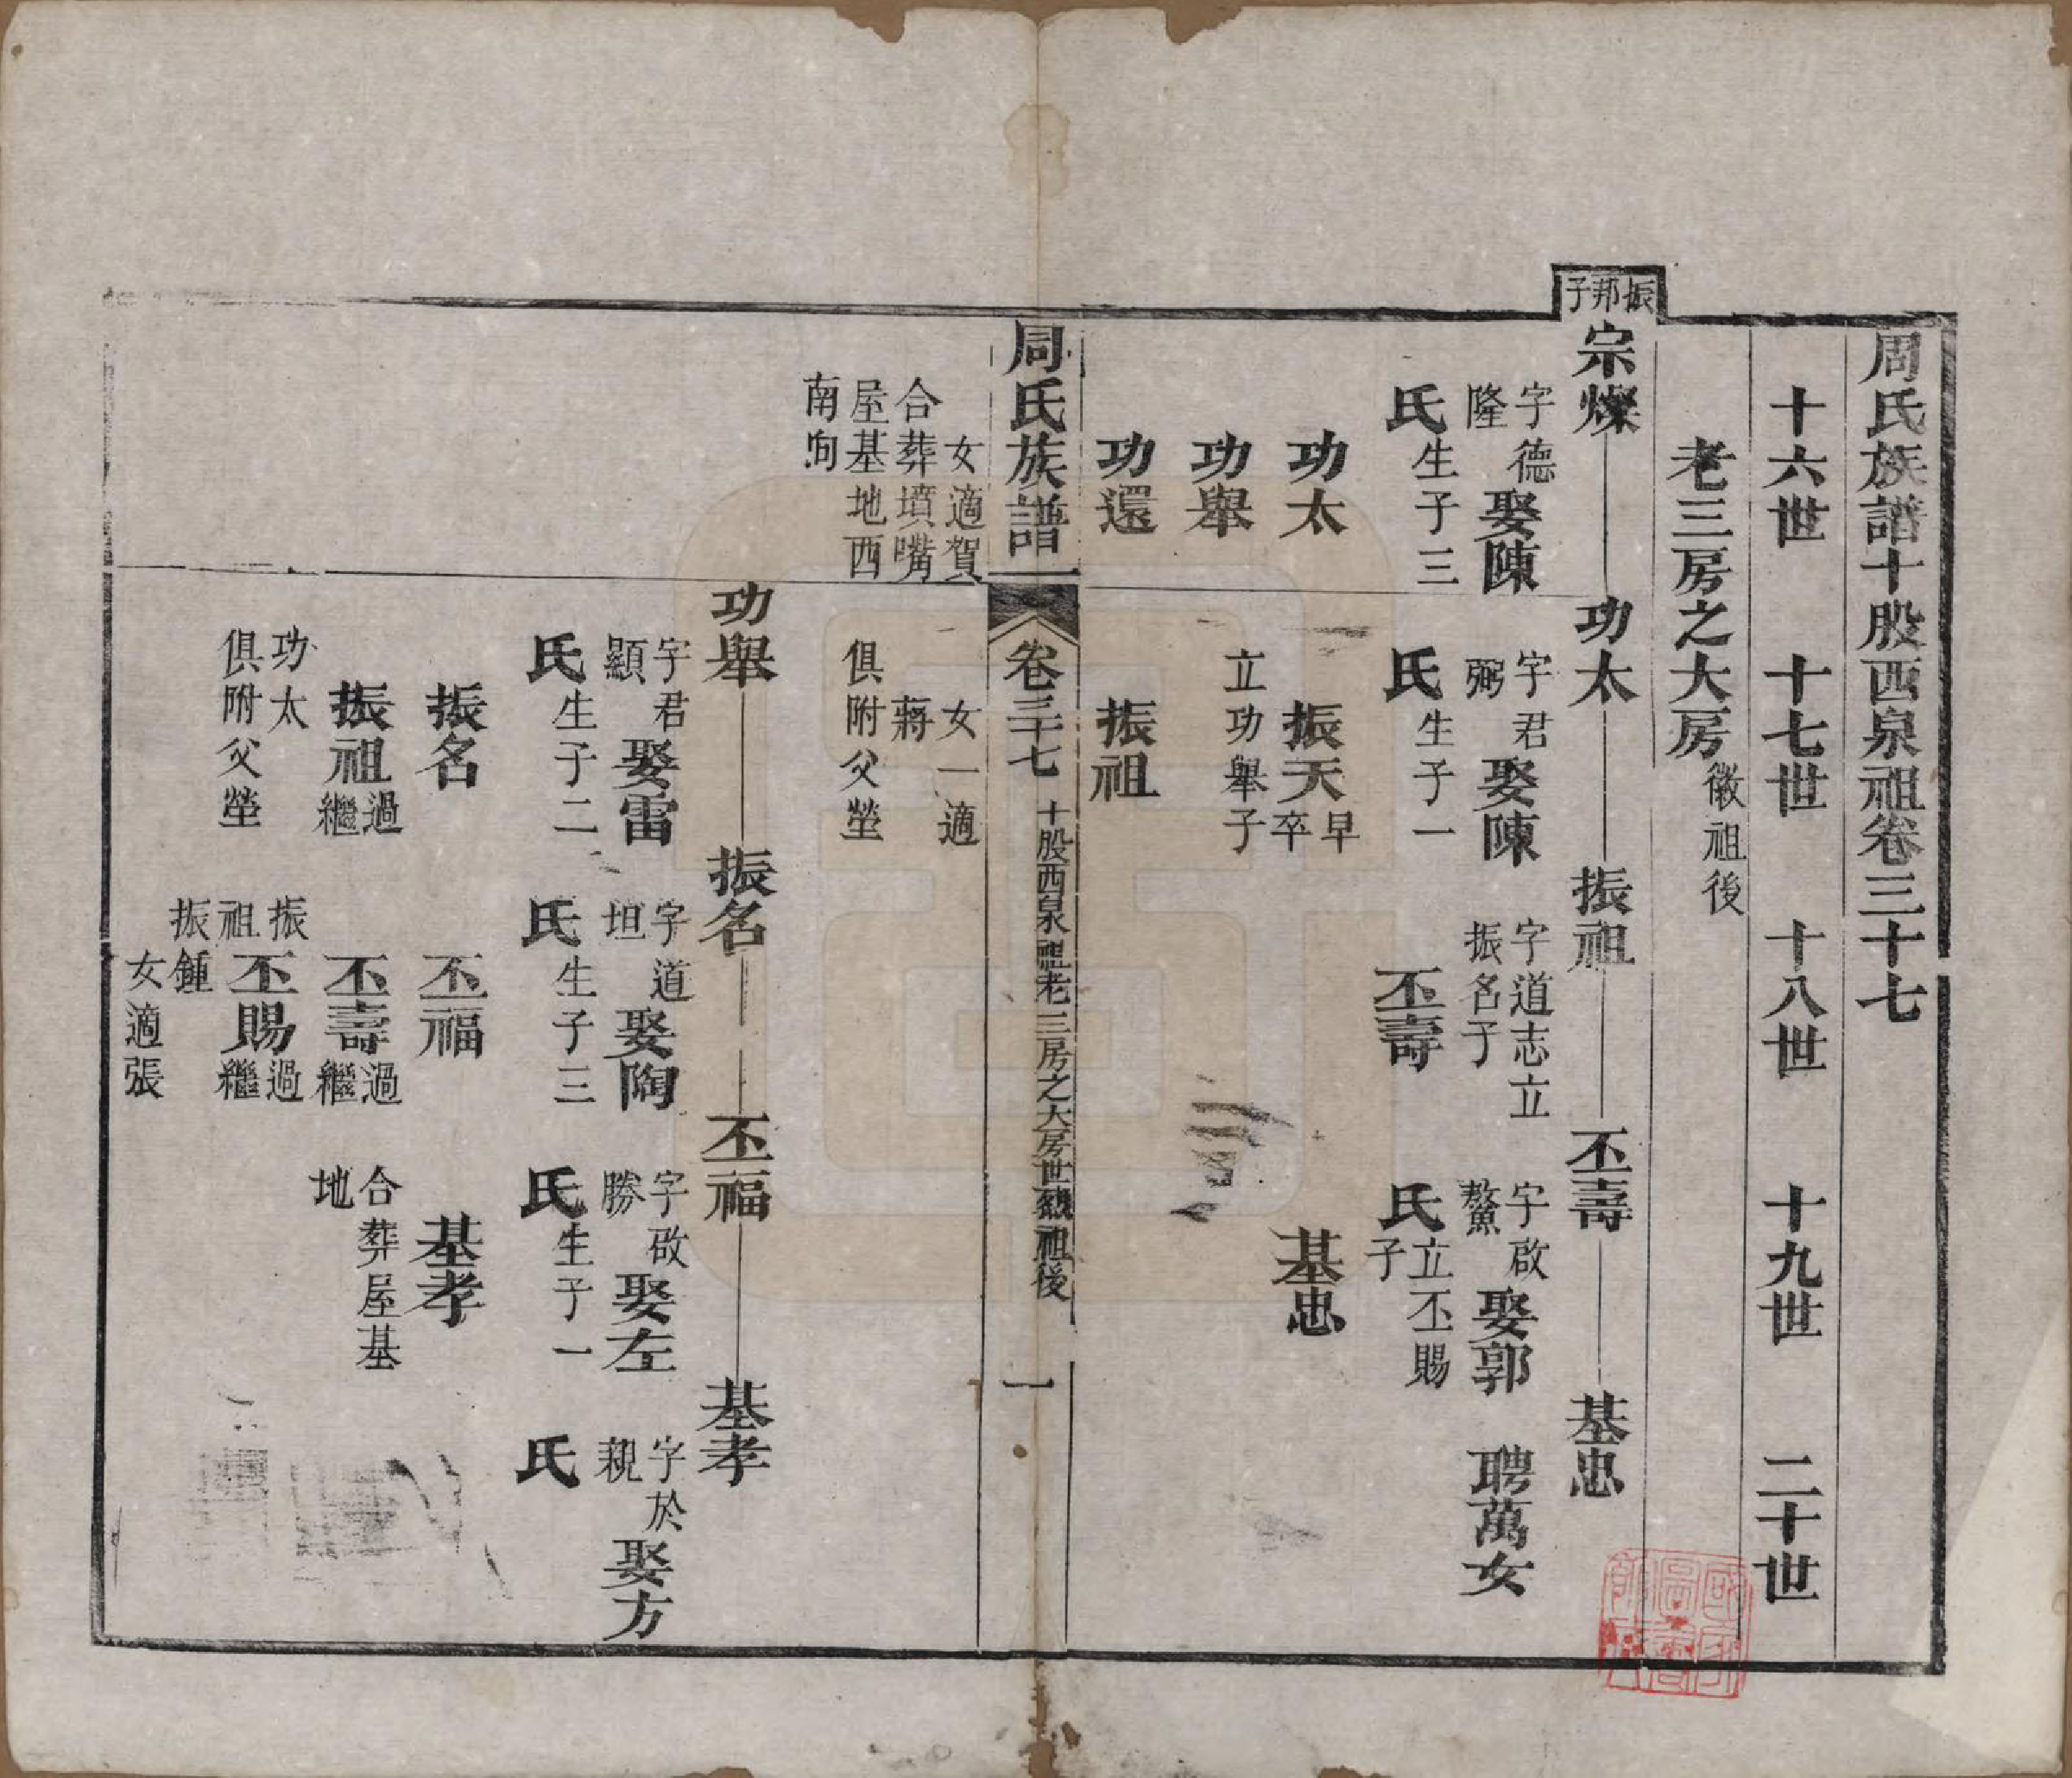 周氏族譜十股西泉祖卷三十七
十六世 十七世 十八世 十九世 二十世
老三房之大房徽祖後
振邦子
宗燦 功太 振祖 丕壽 基忠
字德隆娶陳氏生子三
功太
功舉
功還
女適賀
合葬墳嘴屋基地西南向
字君弼娶陳氏生子一
振天早卒
立功舉子
振祖
女一適蔣
俱附父塋
字道志立振名子
丕壽
字啟鰲娶郭氏立丕賜子
基忠
聘萬女
周氏族譜 卷三十七 十股西泉祖老三房之大房世徽祖後 一
功舉 振名 丕福 基孝
字君顯娶雷氏生子二
振名
振祖過繼功太
俱附父塋
字道坦娶陶氏生子三
丕福
丕壽過繼振祖
丕賜過繼振鍾
女適張
字啟勝娶左氏生子一
基孝
合葬屋基地
字於親娶方氏